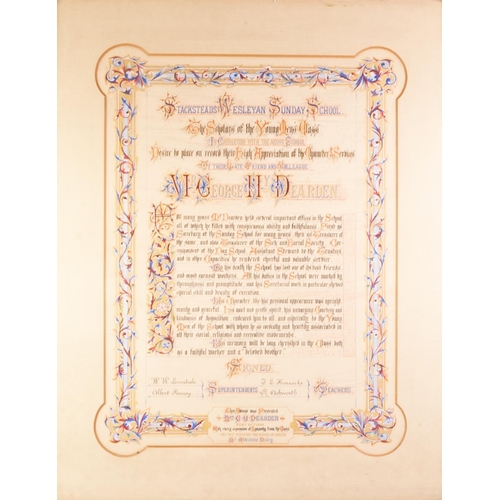 Stacksteads Wesleyan Sunday School.
The Scholars of the Young Mens Class
In Connection with the above School
Desire to place on record their High Appreciation of the Character & Services
of their Late Friend and Colleague
Mr George Hy Dearden.
For many years Mr Dearden held several important offices in the School
all of which he filled with conspicuous ability and faithfulness. First as
Secretary of the Sunday School for many years, then as Treasurer of
the same, and also Treasurer of the Sick and Burial Society. Cor-
respondent of the Day School, Assistant Steward to the Trustees
and in other Capacities he rendered cheerful and valuable service.
By his death the School has lost one of its best friends
and most earnest workers. All his duties in the School were marked by
thoroughness and promptitude, and his Secretarial work in particular shewed
special skill and beauty of execution.
His Character like his personal appearance was upright,
manly and graceful. His quiet and gentle spirit, his unvarying Courtesy and
kindness of disposition, endeared him to all, and especially to the Young
Men of the School with whom he so cordially and heartily associated in
all their social, religious and recreative movements.
His memory will be long cherished in the Class both
as a faithful worker and a "beloved brother."
Signed.
W. W.
Albert
Superintendents.
Teachers.
This Album was Presented
Mrs G H Dearden
With many expressions of Sympathy from the Class